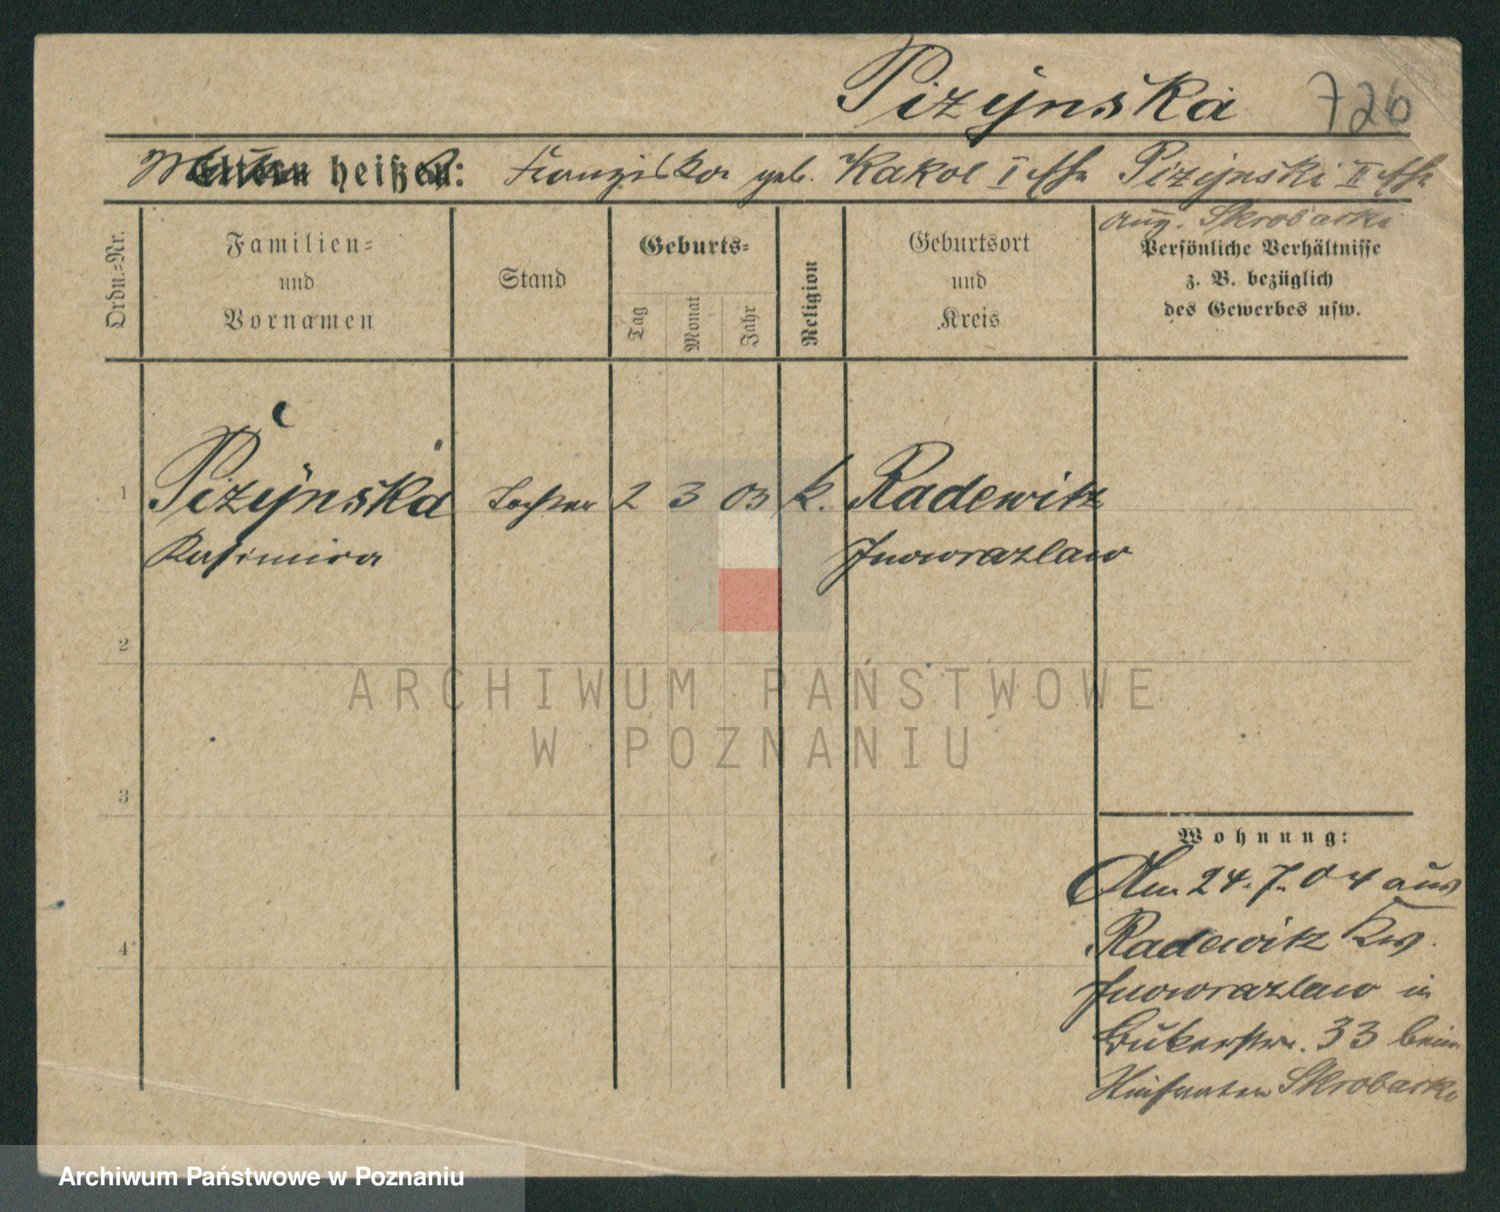 Pizÿnska 726
Mutter heißt: Franziska geb. Kakol I Ehe Pizÿnski II Ehe
Aug. Skrobacki
Ordn.=Nr.
Familien=
und
Vornamen
Stand
Geburts=
Tag
Monat
Jahr
Religion
Geburtsort
und
Kreis
Persönliche Verhältnisse
z. B. bezüglich
des Gewerbes usw.
1 Pizÿnska Tochter 2 3 03 k. Radewitz
Kasimira Inowrazlaw
2
3
4
Wohnung:
Am 24.7.04 aus
Radewitz Krs.
Inowrazlaw in
Bukerstr. 33 beim
Skrobacki
ARCHIWUM PAŃSTWOWE
W POZNANIU
Archiwum Państwowe w Poznaniu